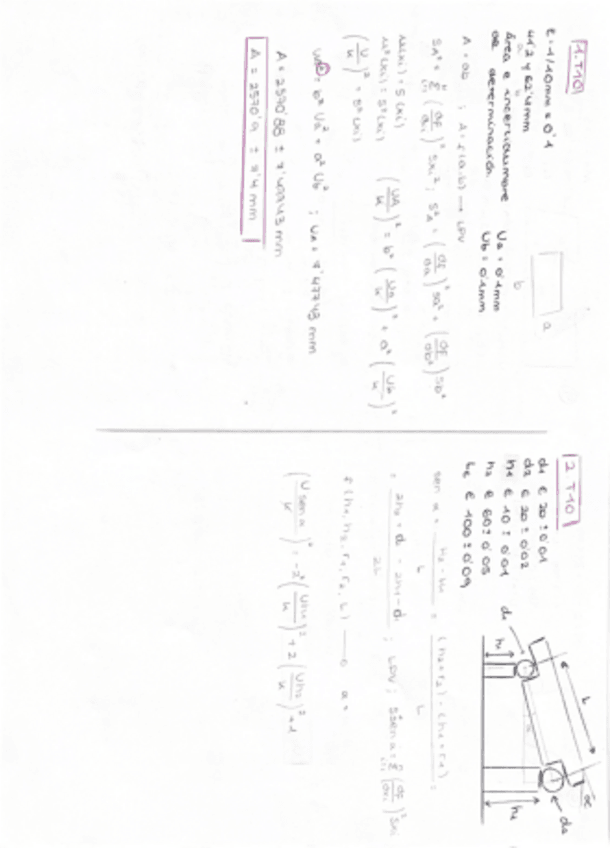 1.T10
E = 1/10mm = 0'1
41'2 y 62'4mm
a b
Área e incertidumbre
de determinación.
Ua = 0'1mm
Ub = 0'1mm
b
a
A = ab ; A = f(a,b) → LPV
SA² = Σ (∂f/∂xi)² Sxi² ; S²A = (∂f/∂a)² Sa² + (∂f/∂b)² Sb²
u(xi) = S(xi)
u²(xi) = S²(xi)
(U/k)² = S²(xi)
(UA/k)² = b² (Ua/k)² + a² (Ub/k)²
UA² = b² Ua² + a² Ub² ; UA = 7'47743 mm
A = 2570'88 ± 7'47743 mm
A = 2570'9 ± 7'4 mm
2 T10
d1 € 20 ± 0'01
d2 € 20 ± 0'02
h1 € 10 ± 0'01
h2 € 60 ± 0'05
L € 100 ± 0'09
d1
h1
L
α
d2
h2
sen α = h2 - h1 / L = (h2 + r2) - (h1 + r1) / L =
= 2h2 + d2 - 2h1 - d1 / 2L ; LPV ; S²sen α = Σ (∂f/∂xi)² Sxi
f (h1, h2, r1, r2, L) → α =
(U sen α/k)² = -2² (Uh1/k)² + 2 (Uh2/k)² + 1